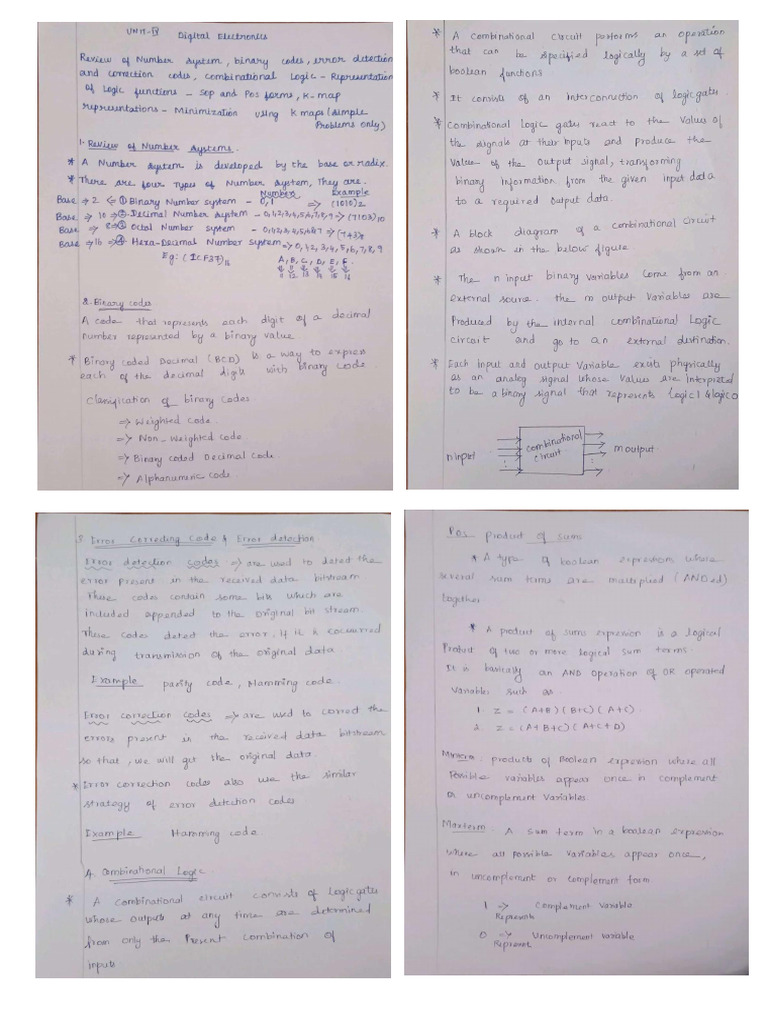 UNIT-IV
Digital Electronics
Review of Number System, binary codes, error detection
and correction codes, combinational Logic - Representation
of Logic functions - SOP and POS forms, K-map
representations - Minimization using K maps (simple
Problems only)
1. Review of Number Systems.
* A Number System is developed by the base or radix.
* There are four types of Number System, They are.
Number Example
Base => 2 <= ① Binary Number System - 0,1 => (1010)2
Base => 10 => ② Decimal Number System - 0,1,2,3,4,5,6,7,8,9 => (7103)10
Base => 8 => ③ Octal Number System - 0,1,2,3,4,5,6&7 => (743)8
Base => 16 => ④ Hexa-Decimal Number System => 0,1,2,3,4,5,6,7,8,9
Eg: (1CF3F)16 A, B, C, D, E, F.
11 12 13 14 15 16
2. Binary codes
A code that represents each digit of a decimal
number represented by a binary value
* Binary coded Decimal (BCD) is a way to express
each of the decimal digits with binary code
Classification of binary codes
=> Weighted Code.
=> Non-Weighted code
=> Binary coded Decimal code.
=> Alphanumeric code.
* A Combinational Circuit performs an operation
that can be specified logically by a set of
boolean fonctions
* It consists of an interconnection of logic gates.
* Combinational Logic gates react to the Values of
the signals at their inputs and Produce the
Value of the output signal, transforming
binary information from the given input data
to a required output data.
* A block diagram of a combinational circuit
as shown in the below figure
* The n input binary variables come from an
external source. the m output variables are
Produced by the internal combinational Logic
circuit and go to an external distination.
* Each input and output Variable exists physically
as an analog signal whose Values are interpreted
to be a binary signal that represents logic1 & logic0
n input combinational circuit m output
3. Error Correcting Code & Error detection
Error detection codes => are used to detect the
error present in the received data bitstream
These codes contain some bits which are
included appended to the original bit stream.
These codes detect the error, if it is occurred
during transmission of the original data
Example parity code, Hamming code.
Error correction codes => are used to correct the
errors present in the received data bitstream
so that, we will get the original data.
* Error correction codes also use the similar
strategy of error detection codes
Example Hamming code.
4. Combinational Logic.
* A combinational circuit consists of Logic gates
whose outputs at any time are determined
from only the Present combination of
inputs
POS product of sums
* A type of boolean expressions where
several sum terms are multiplied (ANDed)
together
* A product of sums expression is a logical
Product of two or more logical sum terms.
It is basically an AND operation of OR operated
variables such as
1. Z = (A+B) (B+C) (A+C).
2. Z = (A+B+C) (A+C+D)
Minterm: products of Boolean expression where all
possible variables appear once in complement
or uncomplement variables.
Maxterm: A sum term in a boolean expression
where all possible variables appear once,
in uncomplement or complement form
1 => Complement Variable
Represents
0 => Uncomplement variable
Represent